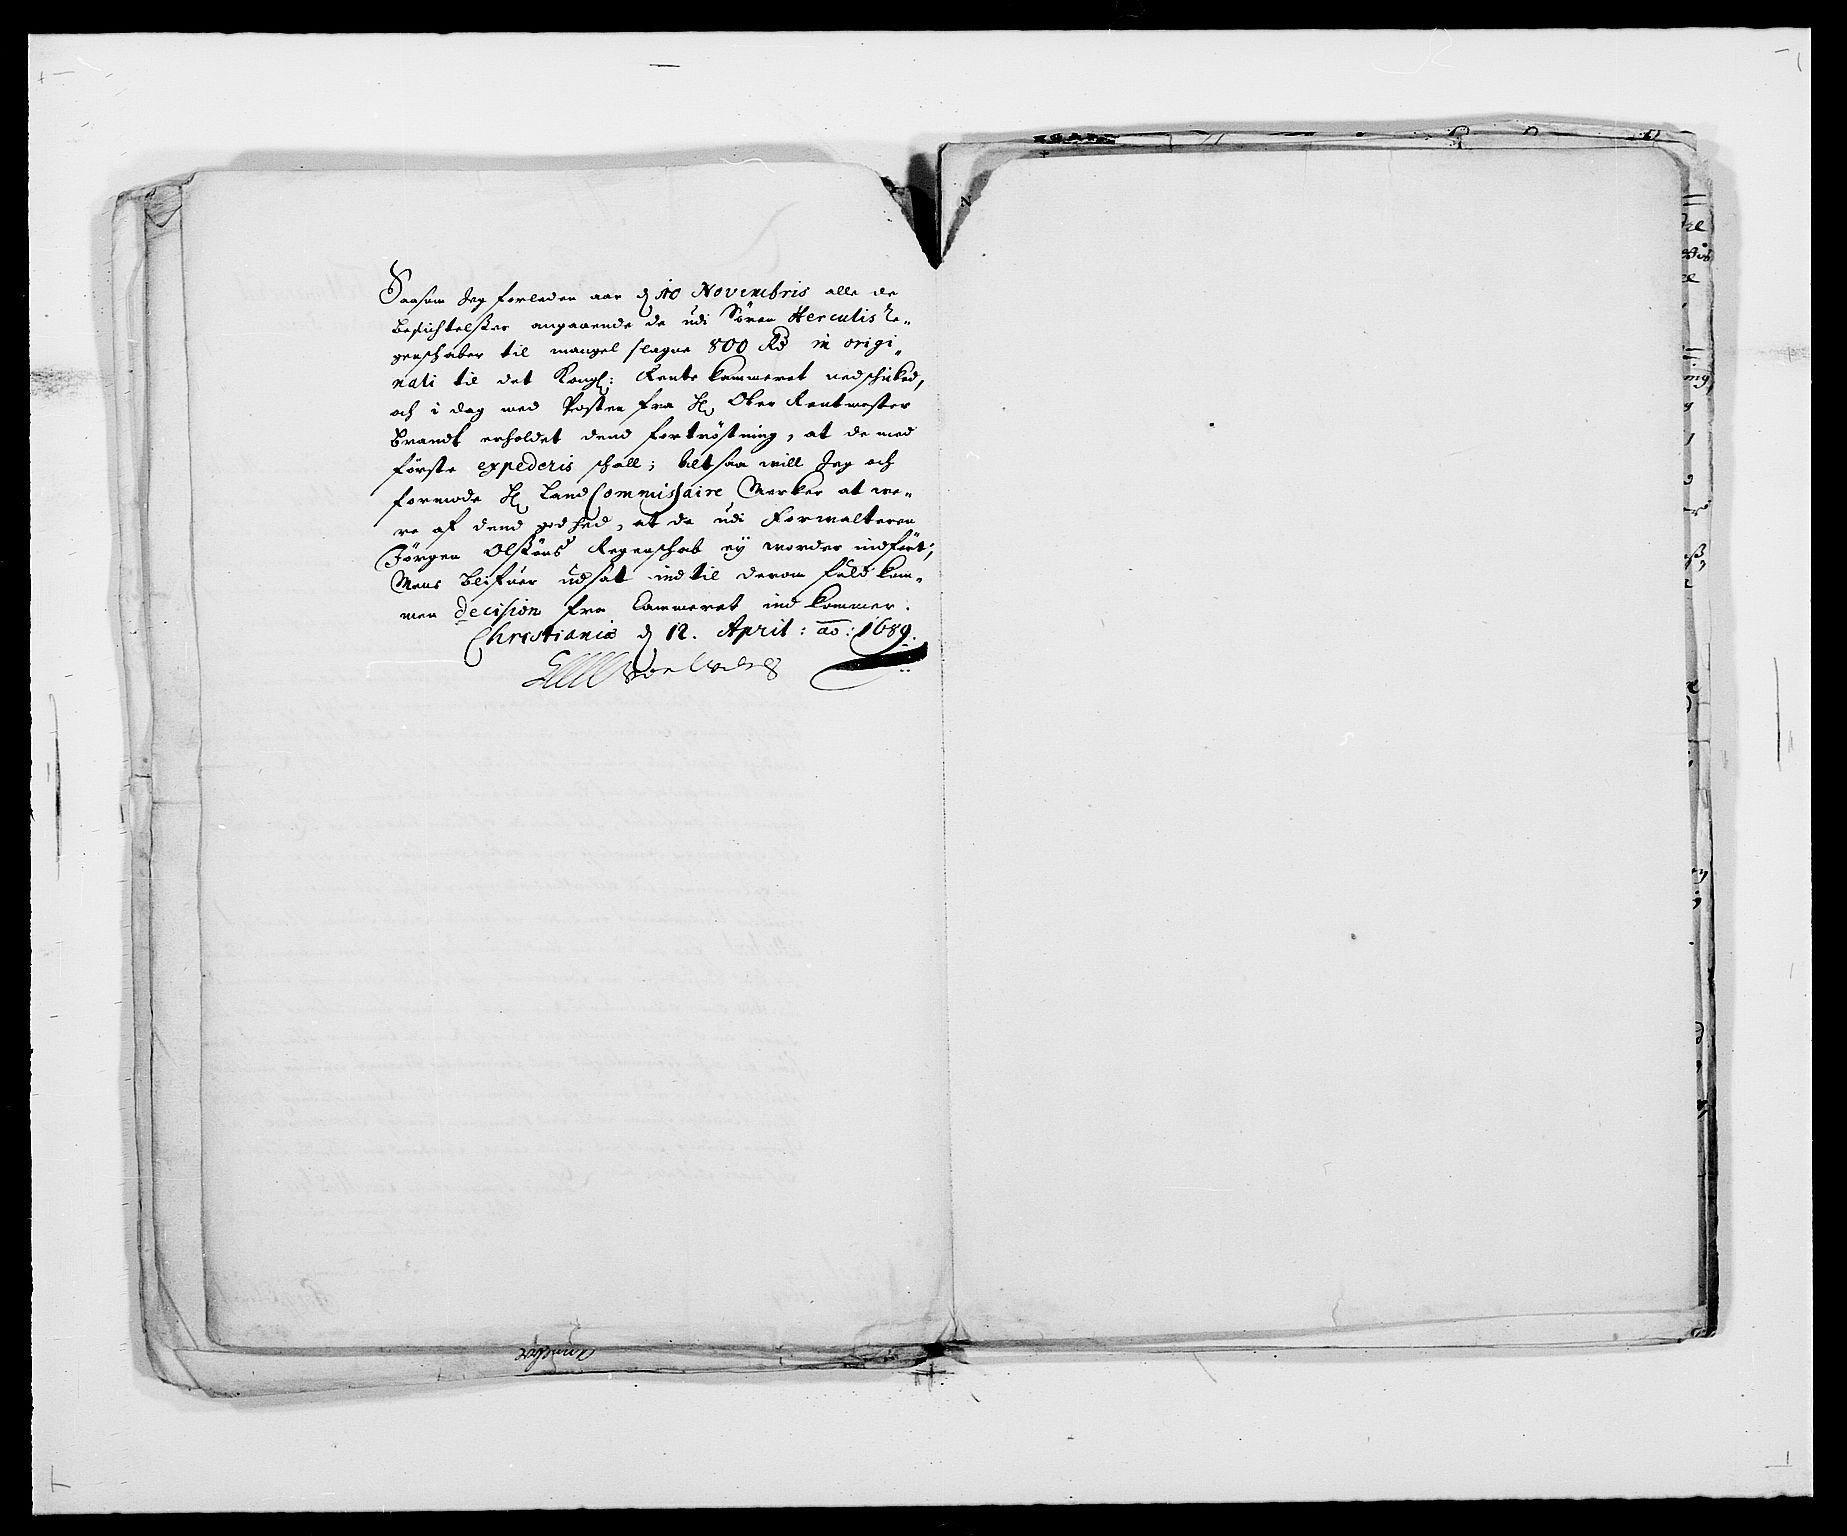 Saasom Jeg forleden aar d 10 Novembris alle de
besichtelser angaaende de udi Sören Herculis Re„
genschaber til mangel slagne 800 Rd in origi„
nali til det Kongl: Rente Cammeret nedschicked,
och i dag med Posten fra H. Ober Rentmester
Brandt erholdet dend fortröstning, at de med
förste expederis schall; Altsaa will Jeg och
formode H. Land Commissaire Merker at we„
re af dend godhed, at de udi Forwalteren
Jörgen Olsöns Regenschab ey worder indfört;
Mens blifuer udsat indtil derom fuldkom„
men decision fra Cammeret ind kommer.
Christiania d 12. April: ao: 1689.